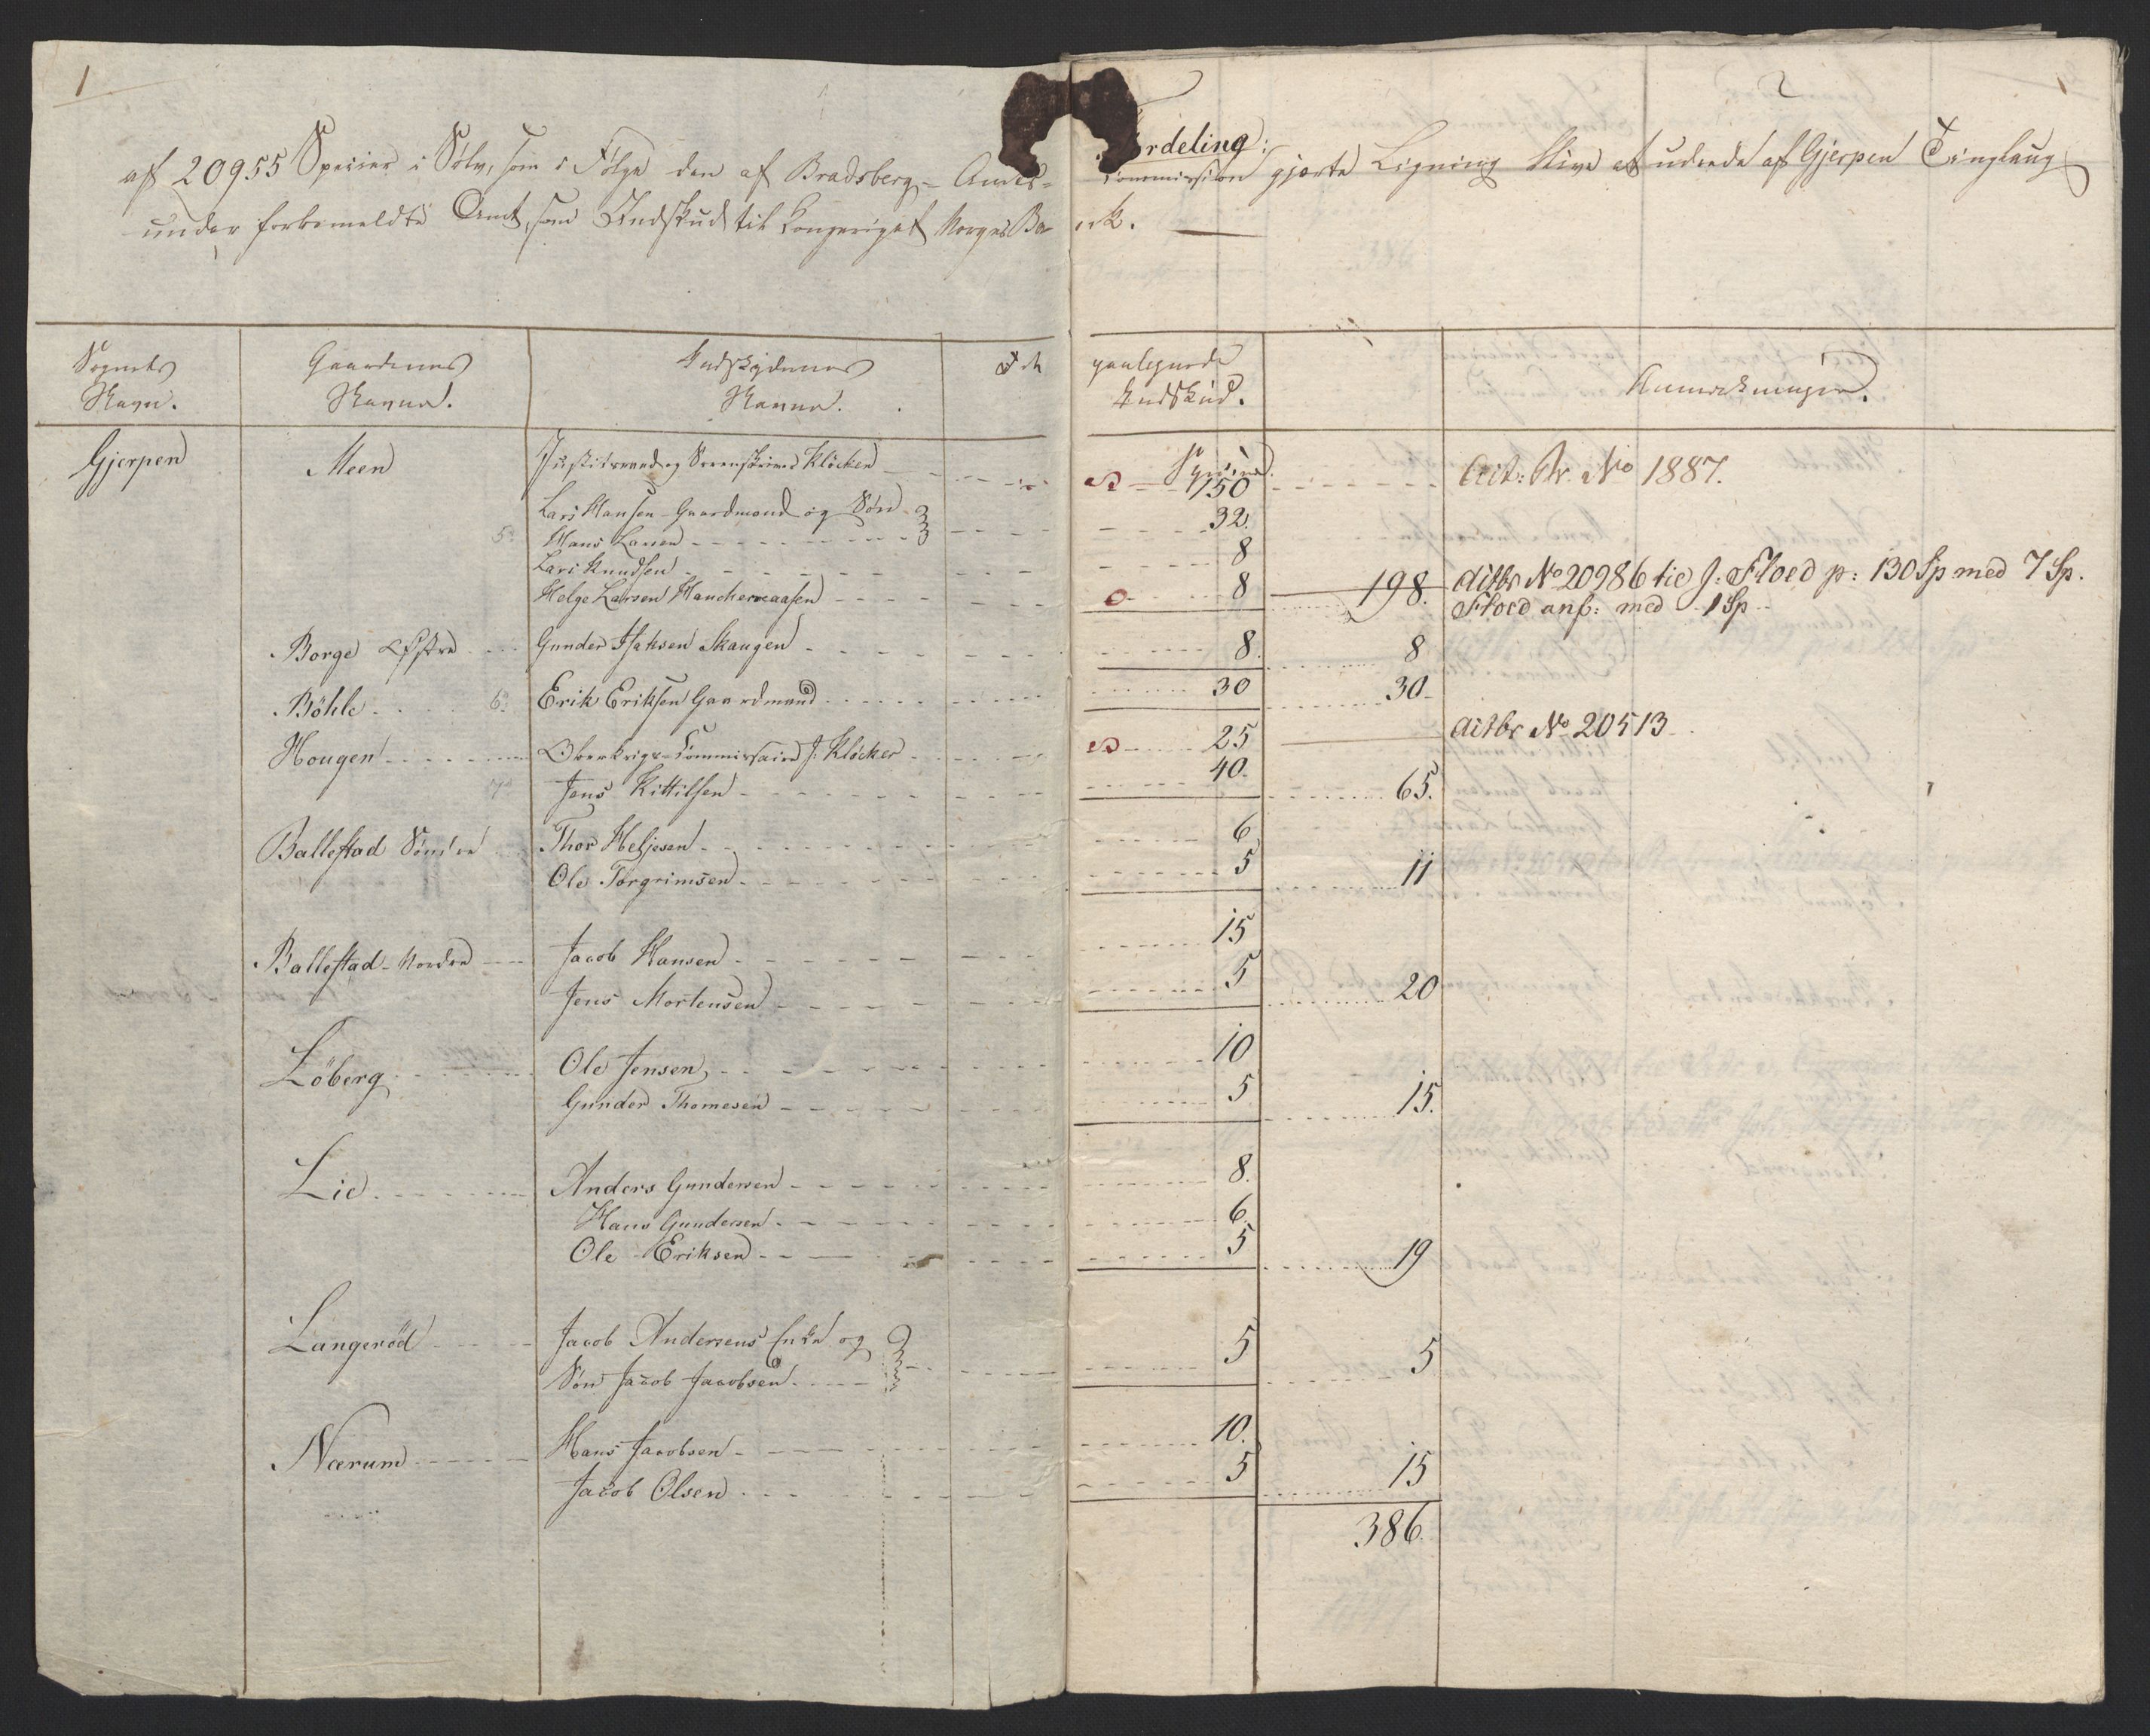 1
2
Fordeling:
af 20955 Specier i Sølv, som i Følge den af Bradsberg Amts- Commission gjorte Ligning blive at udrede af Gjerpen Tinglaug
under forbemeldte Amt, som Indskud til Kongeriget Norges Bank.
Sognets Navn. | Gaardenes Navne. | Indskydernes Navne. | paalignede Indskud. | Anmerkninger.
Specier.
Gjerpen Meen Justitsraad og Sorenskriver Klöcker 150 No 1887.
Lars Hansen Gaardmand og Søn 32.
5. Hans Larsen
Lars Knudsen 8
Helge Larsen 8 198. No 20986 tie J: Floed p: 130 Sp med 7 Sp.
Floed ans: med 1 Sp
Borge Østre Gunder Isaksen Skaugen 8. 8
Böhle 6. Erik Eriksen Gaardmand 30 30
Hougen Overkrigs-Commissaire J. Klöcker 25 No 20513
7 Jens Kittilsen 40. 65.
Ballestad Söndre Thor Heljesen 6.
Ole Torgrimsen 5 11
Ballestad Nordre Jacob Hansen 15
Jens Mortensen 5 20
Löberg Ole Jensen 10
Gunder Thomesen 5 15.
Lie Anders Gundersen 8.
Hans Gundersen 6.
Ole Eriksen 5 19
Langeröd Jacob Andersens Enke og
Søn Jacob Jacobsen 5 5
Nærum Hans Jacobsen 10.
Jacob Olsen 5 15
386.